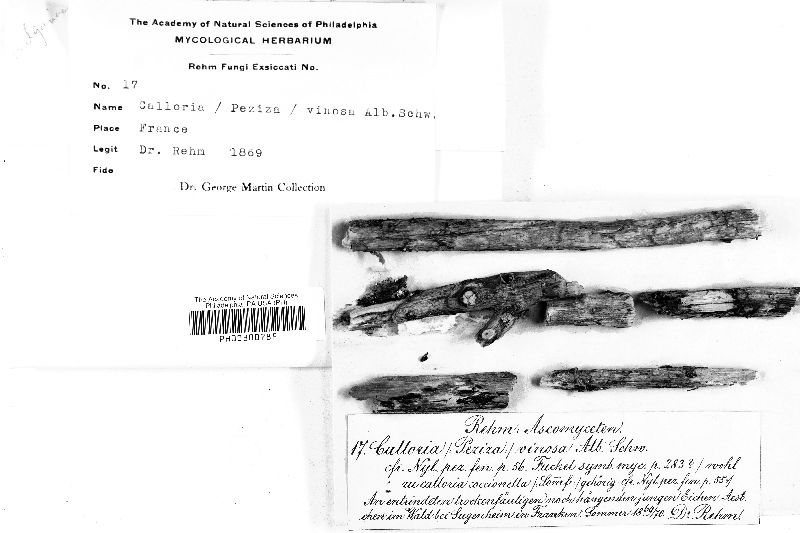 The Academy of Natural Sciences of Philadelphia
MYCOLOGICAL HERBARIUM
Rehm Fungi Exsiccati No.
No. 17
Name Calloria / Peziza / vinosa Alb.Schw.
Place France
Legit Dr. Rehm 1869
Fide
Dr. George Martin Collection
The Academy of Natural Sciences
Philadelphia, PA USA (PH)
Rehm: Ascomyceten.
17. Calloria / Peziza / vinosa Alb. Schw.
cfr. Nyl. pez. fen. p. 56. Fuckel symb. myc. p. 283 ? / wohl
zu calloria coccinella / Somf. / gehörig cfr. Nyl. pez. fen. p. 55 /
An entrindeten trockenfäuligen noch hängenden jungen Eichen-Aest-
chen im Wald bei Sugenheim in Franken. Sommer 1869/70. Dr. Rehm.